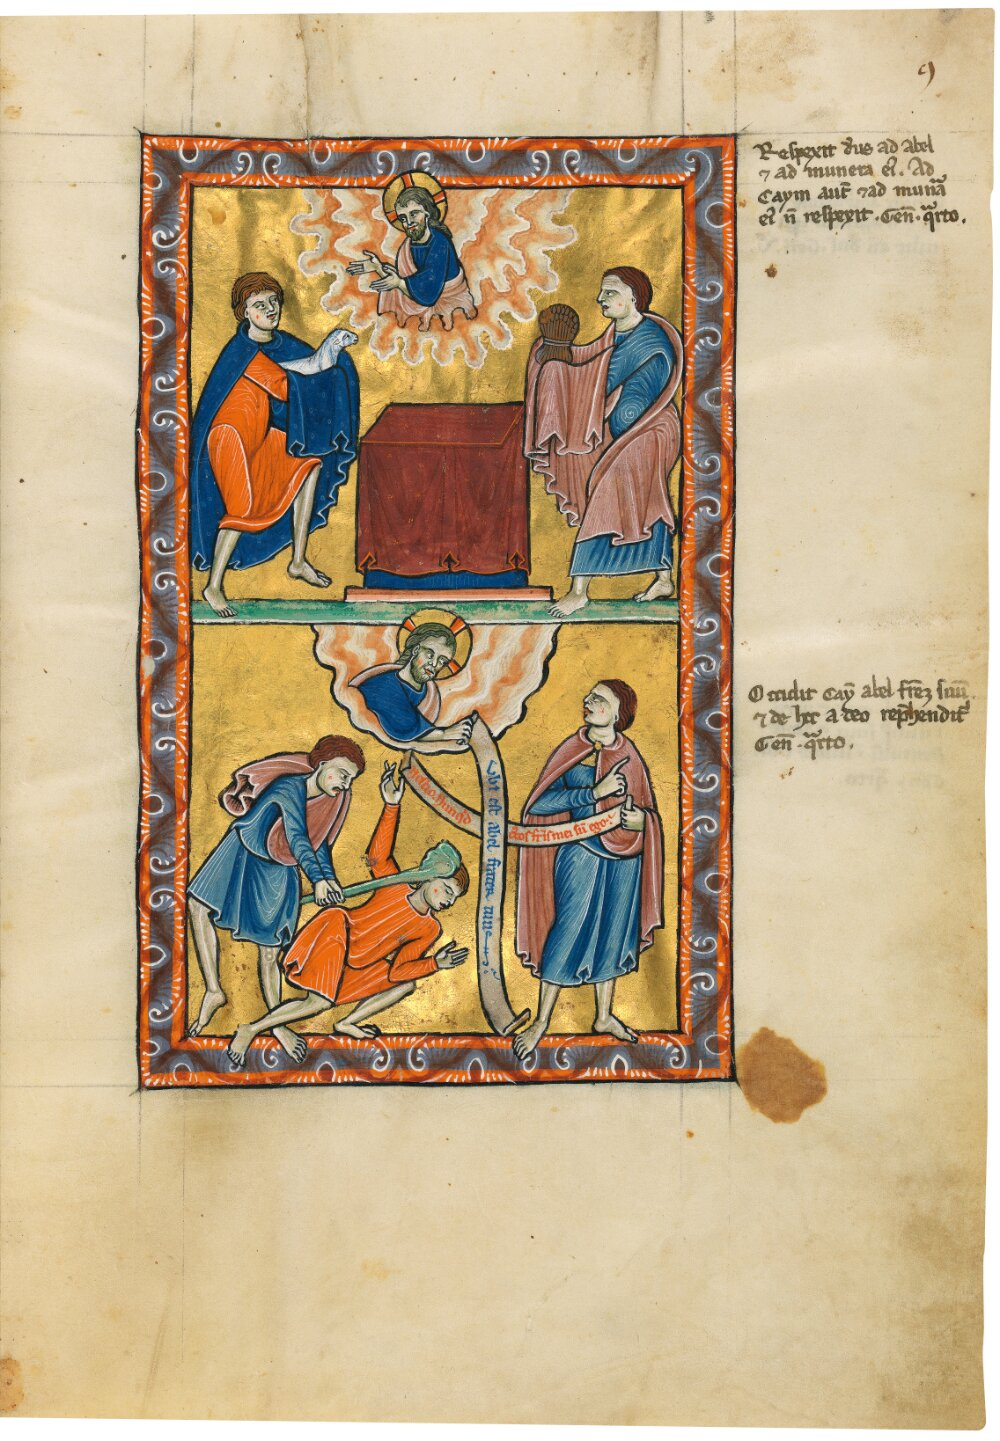 9
Respexit dñs ad abel
⁊ ad munera ei⁹. Ad
Caym aut̃ ⁊ ad mun̄a
ei⁹ n̄ respexit. Gen̄. q̄rto.
Occidit Cay̅ abel fr̄eȝ suū
⁊ de hoc a deo rep̄hendit᷑
Gen̄. q̄rto.
Vbi est abel frater tuus?
Nescio. Nunqd
custos fr̄is mei sū ego?